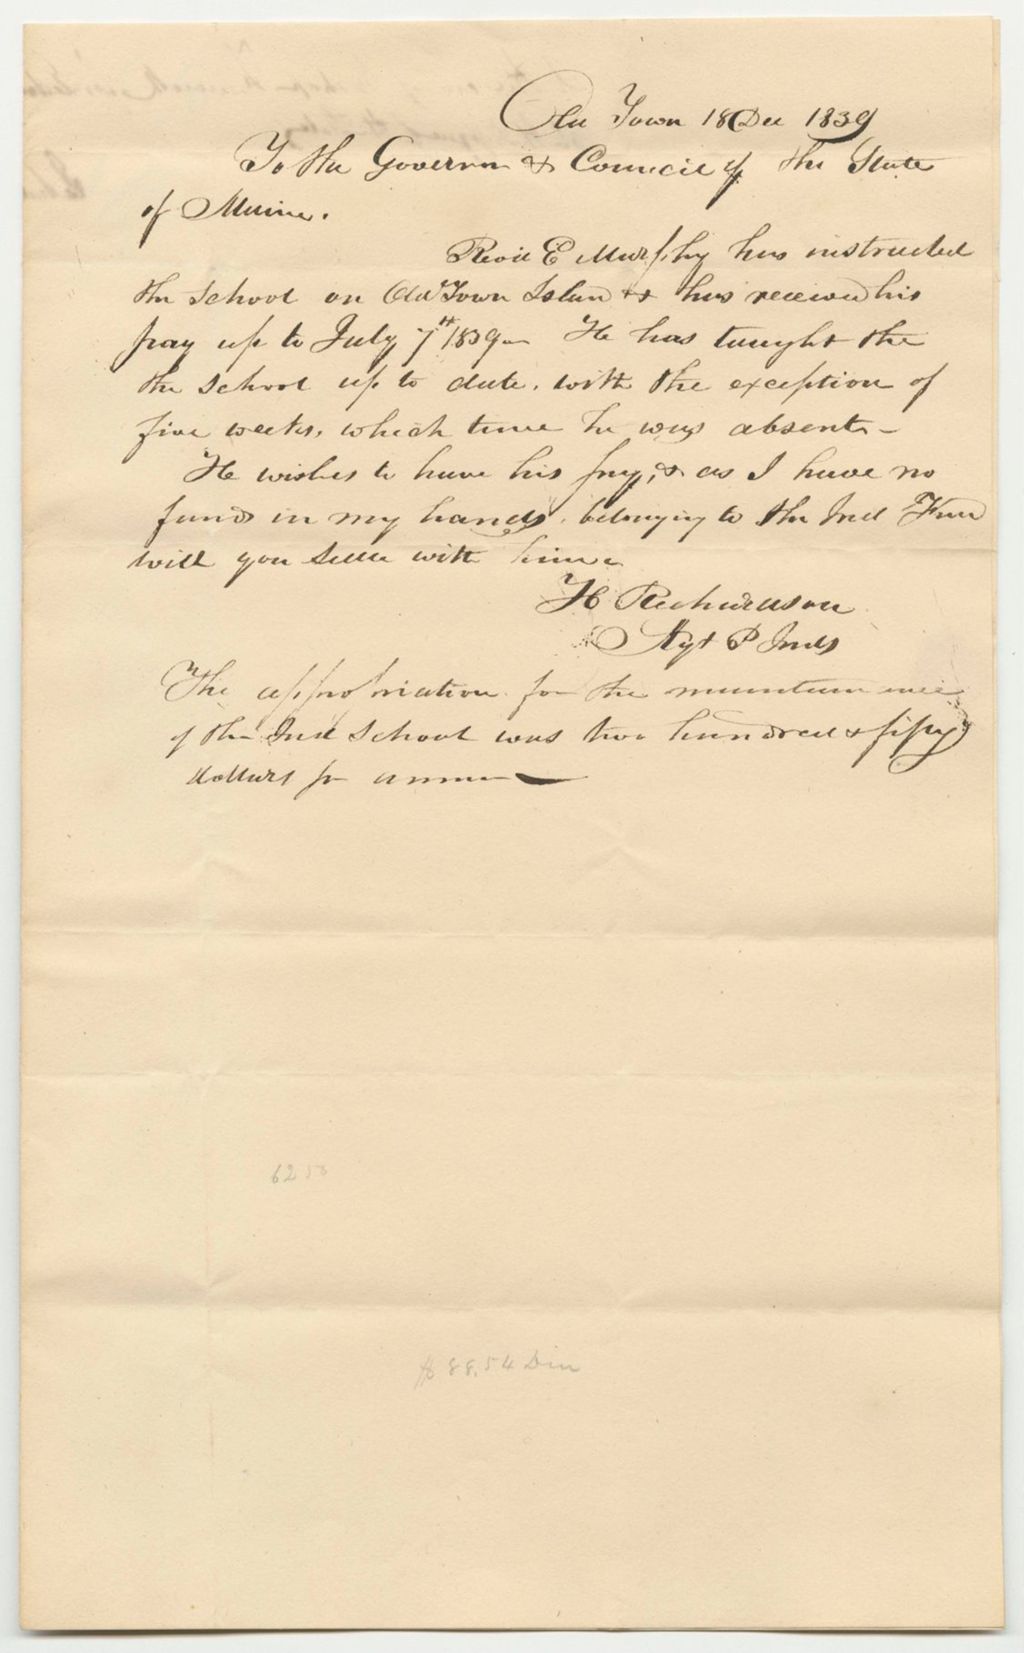 Old Town 18 Dec 1839
To the Governor & Council of the State
of Maine.
Revd E Murphy has instructed
the School on Old Town Island & has received his
pay up to July 7th 1839 — He has taught the
the School up to date, with the exception of
five weeks, which time he was absent —
He wishes to have his pay, & as I have no
funds in my hands, belonging to the Ind Fund
will you settle with him
H Richardson
Agt P Inds
The appropriation for the maintainence
of the Ind School was two hundred & fifty
dollars pr annum —
62 50
$ 88,54 Due